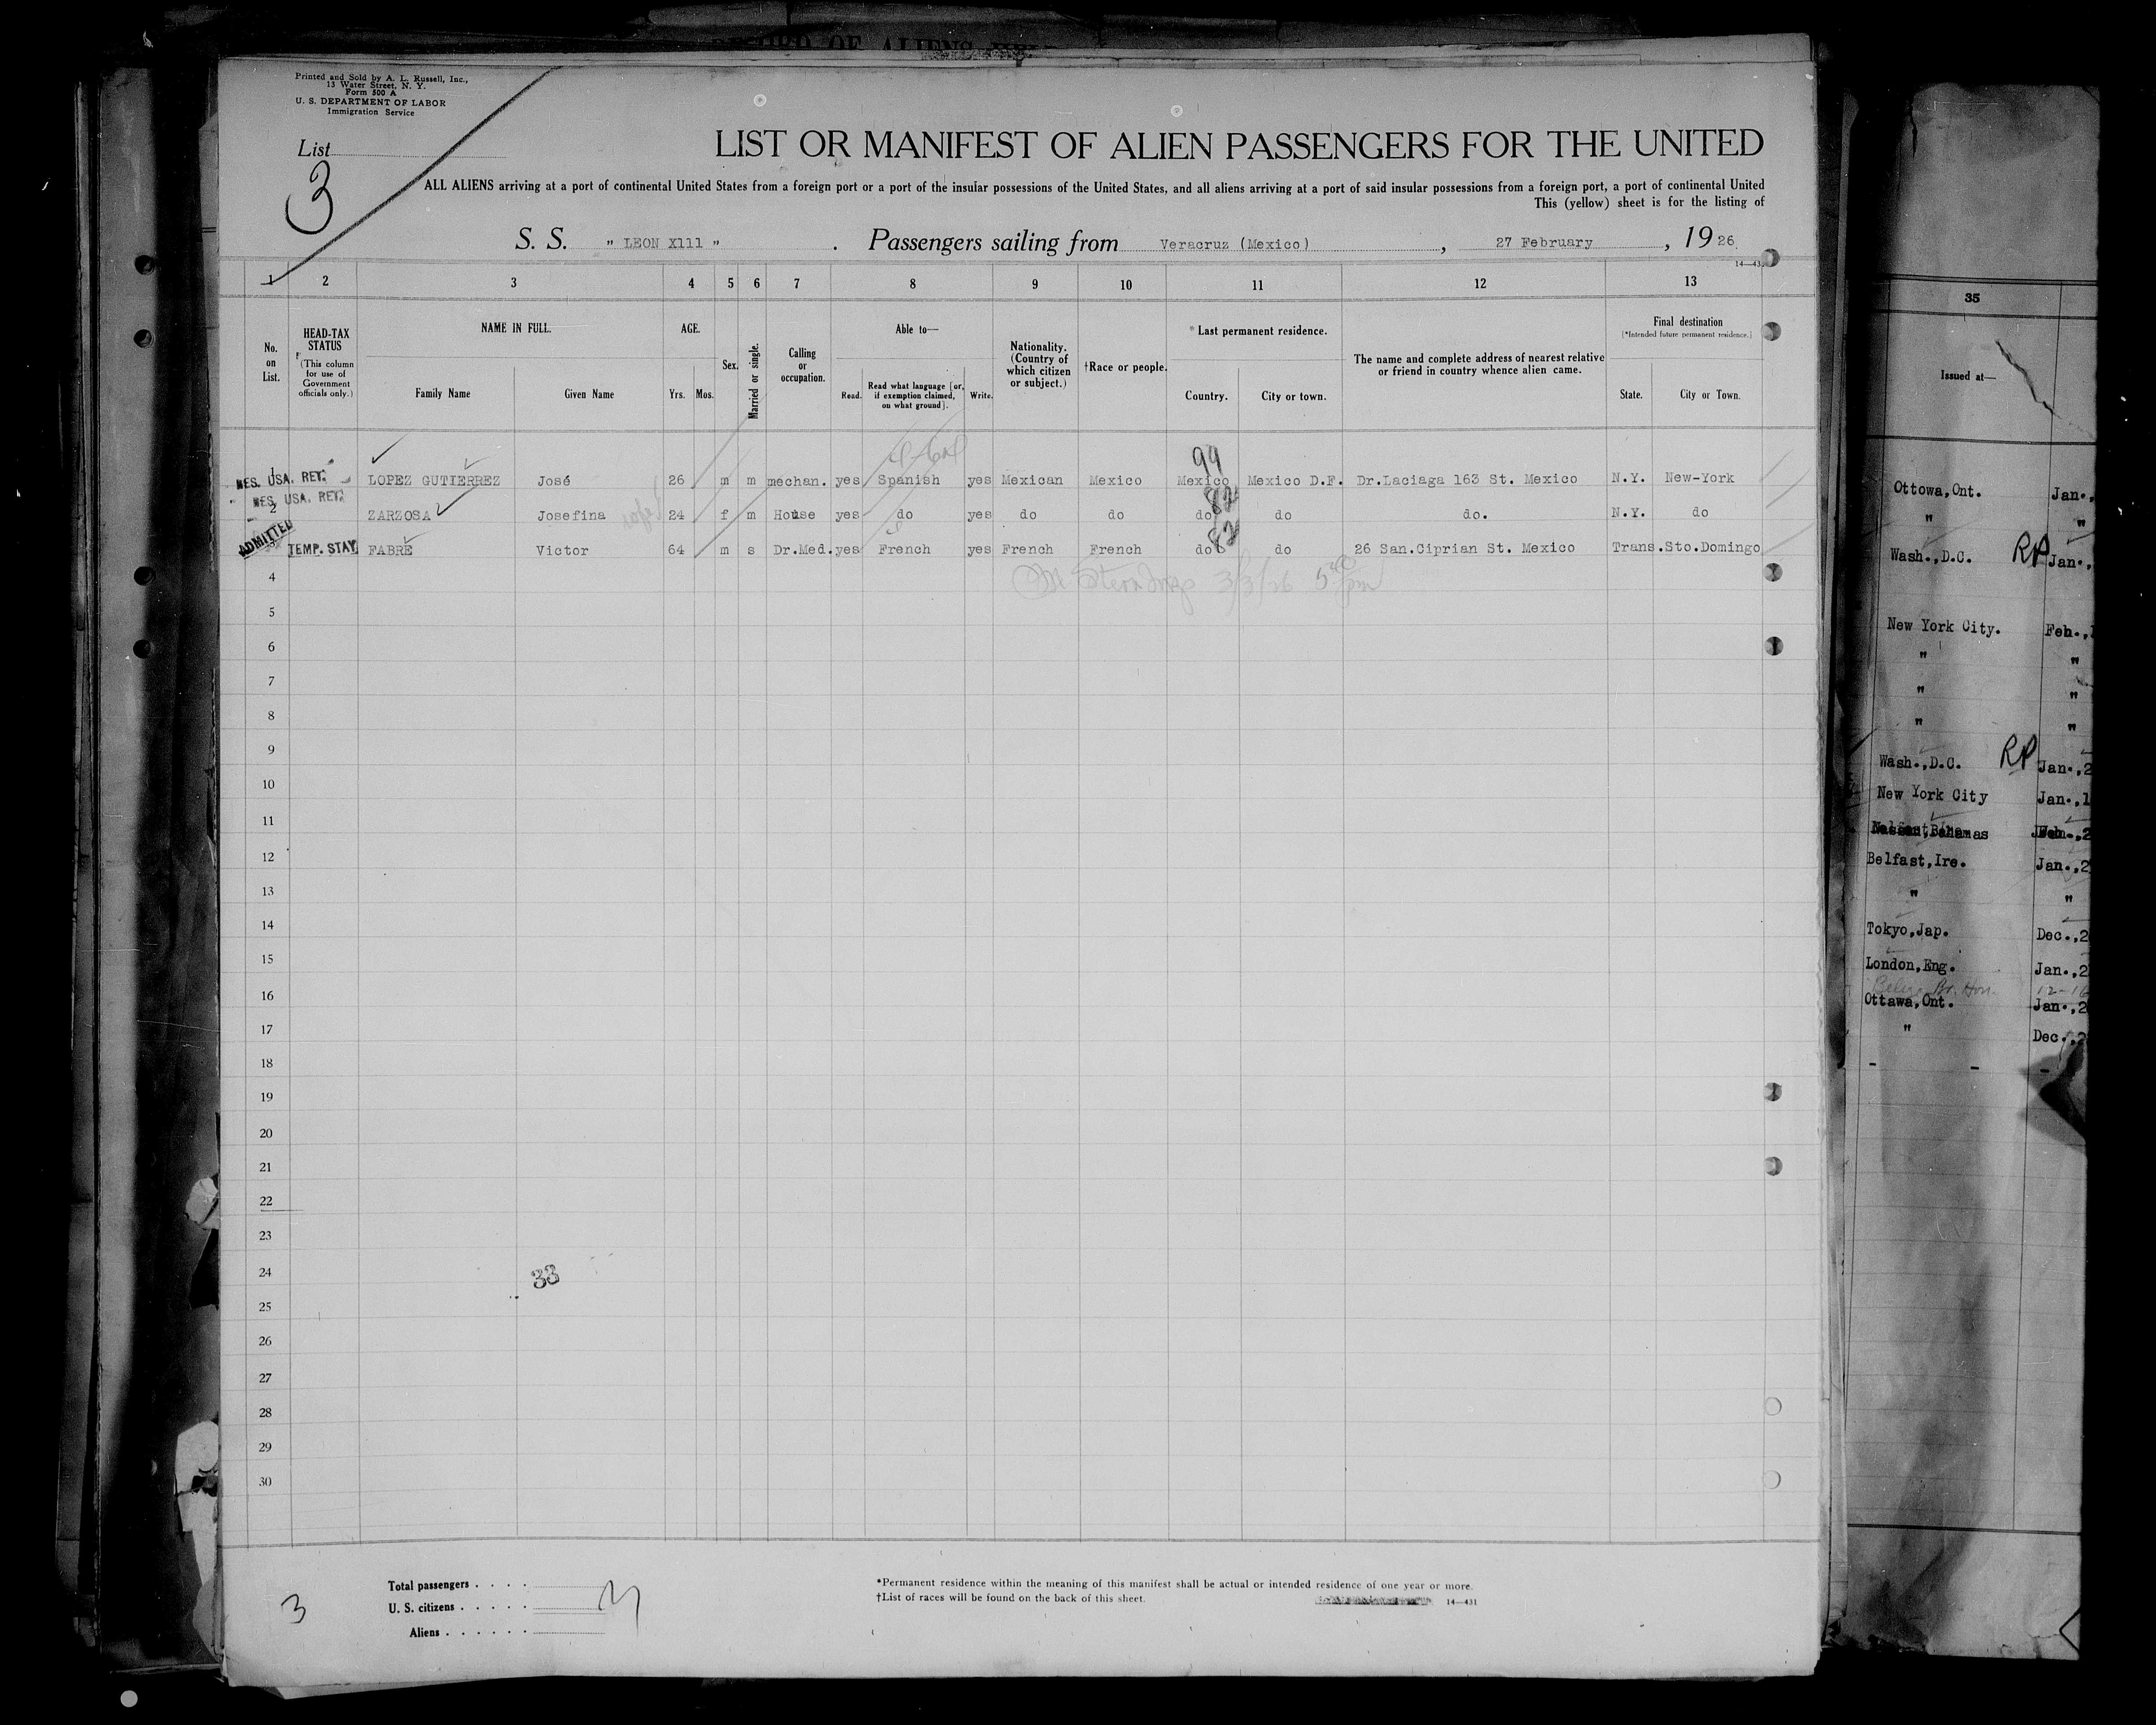 RECORD OF ALIENS
Printed and Sold by A. L. Russell, Inc.,
13 Water Street, N. Y.
Form 500 A
U. S. DEPARTMENT OF LABOR
Immigration Service
List
3
LIST OR MANIFEST OF ALIEN PASSENGERS FOR THE UNITED
ALL ALIENS arriving at a port of continental United States from a foreign port or a port of the insular possessions of the United States, and all aliens arriving at a port of said insular possessions from a foreign port, a port of continental United
This (yellow) sheet is for the listing of
S. S. " LEON X111 " . Passengers sailing from Veracruz (Mexico) , 27 February , 19 26
14—43
1 2 3 4 5 6 7 8 9 10 11 12 13
No. on List.
HEAD-TAX STATUS
(This column for use of Government officials only.)
NAME IN FULL.
Family Name Given Name
AGE.
Yrs. Mos.
Sex.
Married or single.
Calling or occupation.
Able to—
Read. Read what language [or, if exemption claimed, on what ground]. Write.
Nationality. (Country of which citizen or subject.)
†Race or people.
* Last permanent residence.
Country. City or town.
The name and complete address of nearest relative or friend in country whence alien came.
Final destination
(*Intended future permanent residence.)
State. City or Town.
99
1 RES. USA. RET. LOPEZ GUTIERREZ José 26 m m mechan. yes Spanish yes Mexican Mexico Mexico Mexico D.F. Dr.Laciaga 163 St. Mexico N.Y. New-York
82
2 RES. USA. RET. ZARZOSA Josefina 24 f m House yes do yes do do do do do. N.Y. do
82
3 ADMITTED TEMP. STAY FABRE Victor 64 m s Dr.Med. yes French yes French French do do 26 San.Ciprian St. Mexico Trans. Sto.Domingo
3/3/26 5 pm
4
5
6
7
8
9
10
11
12
13
14
15
16
17
18
19
20
21
22
23
24
33
25
26
27
28
29
30
3
Total passengers . . . .
U. S. citizens . . . . .
Aliens . . . . . .
*Permanent residence within the meaning of this manifest shall be actual or intended residence of one year or more.
†List of races will be found on the back of this sheet.
14—431
35
Issued at—
Ottowa,Ont. Jan.,
" "
Wash.,D.C. RP Jan.,
New York City. Feb.,
" "
" "
" "
Wash.,D.C. RP Jan.,2
New York City Jan.,1
Nassau,Bahamas
Belfast,Ire. Jan.,2
" "
Tokyo,Jap. Dec.,2
London,Eng. Jan.,2
Belize Br. Hon. 12-16
Ottawa,Ont. Jan.,2
" Dec.,2
- - -